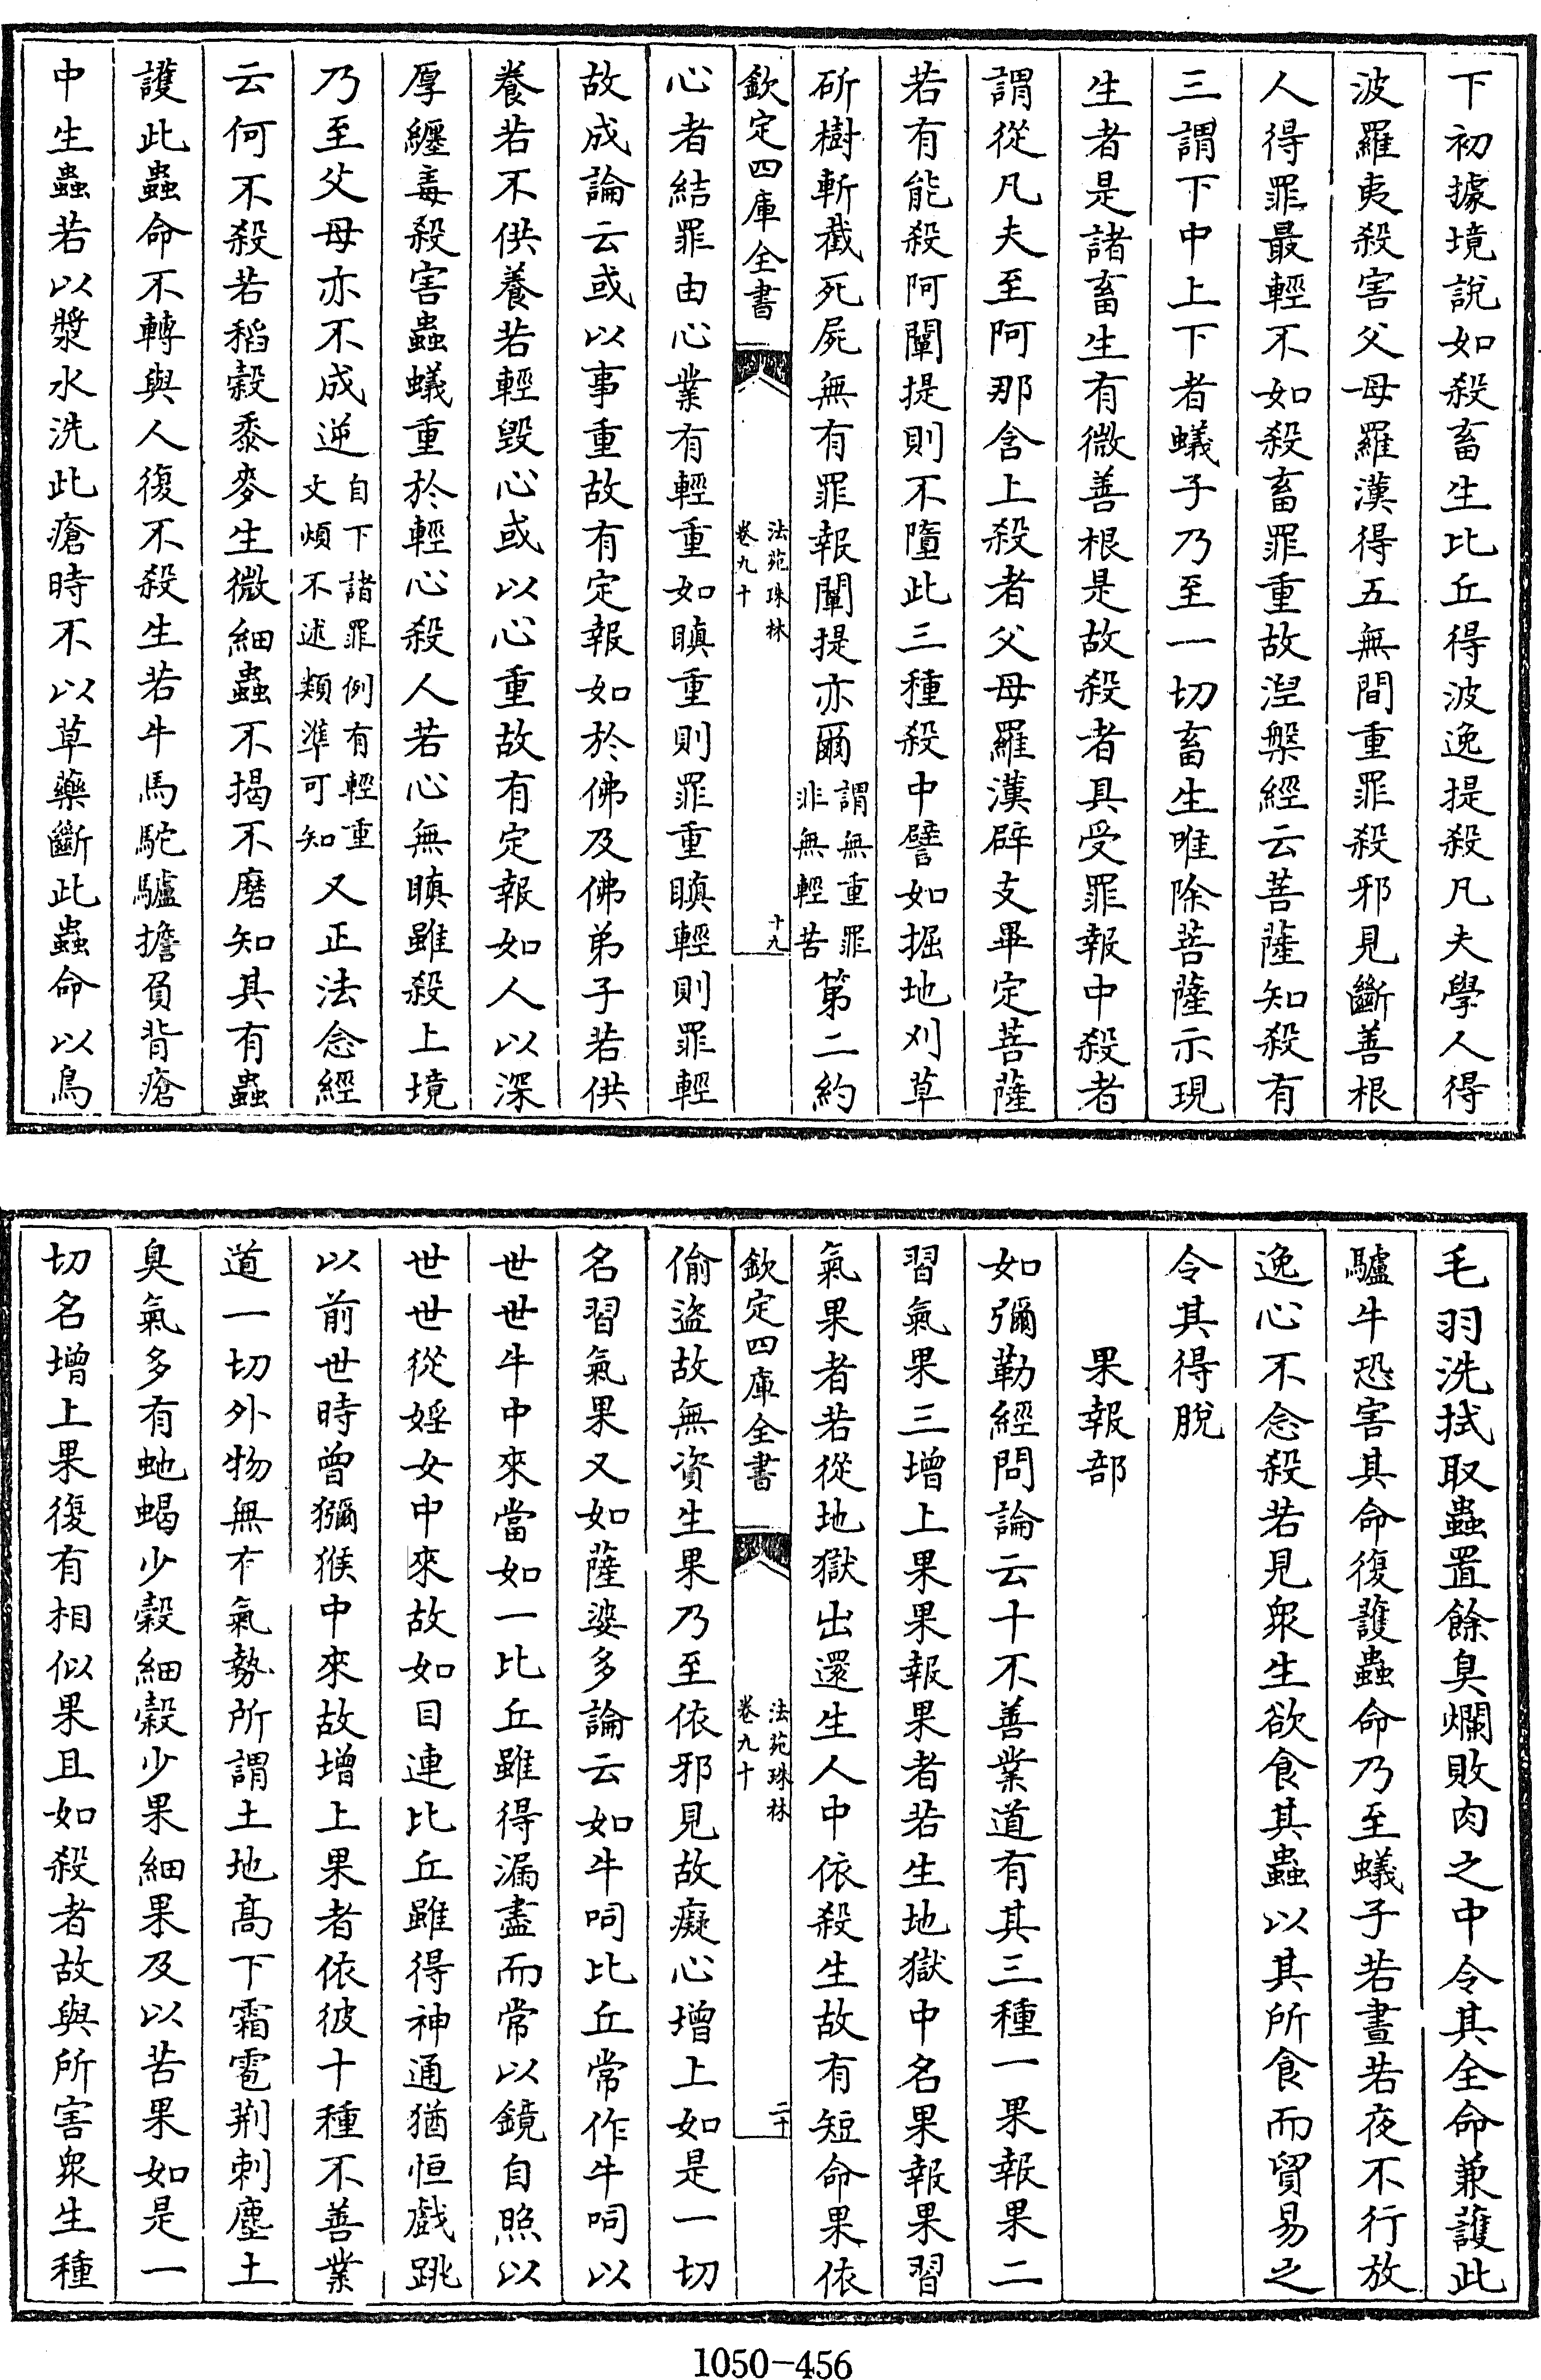 下初據境說如殺畜生比丘得波逸提殺凡夫學人得
波羅夷殺害父母羅漢得五無間重罪殺邪見斷善根
人得罪最輕不如殺畜罪重故涅槃經云菩薩知殺有
三謂下中上下者蟻子乃至一切畜生唯除菩薩示現
生者是諸畜生有微善根是故殺者具受罪報中殺者
謂從凡夫至阿那含上殺者父母羅漢辟支畢定菩薩
若有能殺阿闡提則不墮此三種殺中譬如掘地刈草
斫樹斬截死屍無有罪報闡提亦爾謂無重罪非無輕苦第二約
欽定四庫全書
法苑珠林
卷九十
十九
心者結罪由心業有輕重如瞋重則罪重瞋輕則罪輕
故成論云或以事重故有定報如於佛及佛弟子若供
養若不供養若輕毀心或以心重故有定報如人以深
厚纏毒殺害蟲蟻重於輕心殺人若心無瞋雖殺上境
乃至父母亦不成逆自下諸罪例有輕重文煩不述類準可知又正法念經
云何不殺若稻穀黍麥生微細蟲不揭不磨知其有蟲
護此蟲命不轉與人復不殺生若牛馬駝驢擔負背瘡
中生蟲若以漿水洗此瘡時不以草藥斷此蟲命以鳥
毛羽洗拭取蟲置餘臭爛敗肉之中令其全命兼護此
驢牛恐害其命復護蟲命乃至蟻子若晝若夜不行放
逸心不念殺若見眾生欲食其蟲以其所食而貿易之
令其得脫
果報部
如彌勒經問論云十不善業道有其三種一果報果二
習氣果三增上果果報果者若生地獄中名果報果習
氣果者若從地獄出還生人中依殺生故有短命果依
欽定四庫全書
法苑珠林
卷九十
二十
偷盜故無資生果乃至依邪見故癡心增上如是一切
名習氣果又如薩婆多論云如牛呞比丘常作牛呞以
世世牛中來當如一比丘雖得漏盡而常以鏡自照以
世世從婬女中來故如目連比丘雖得神通猶恒戲跳
以前世時曾獼猴中來故增上果者依彼十種不善業
道一切外物無有氣勢所謂土地高下霜雹荆刺塵土
臭氣多有虵蝎少穀細穀少果細果及以苦果如是一
切名增上果復有相似果且如殺者故與所害眾生種
1050-456